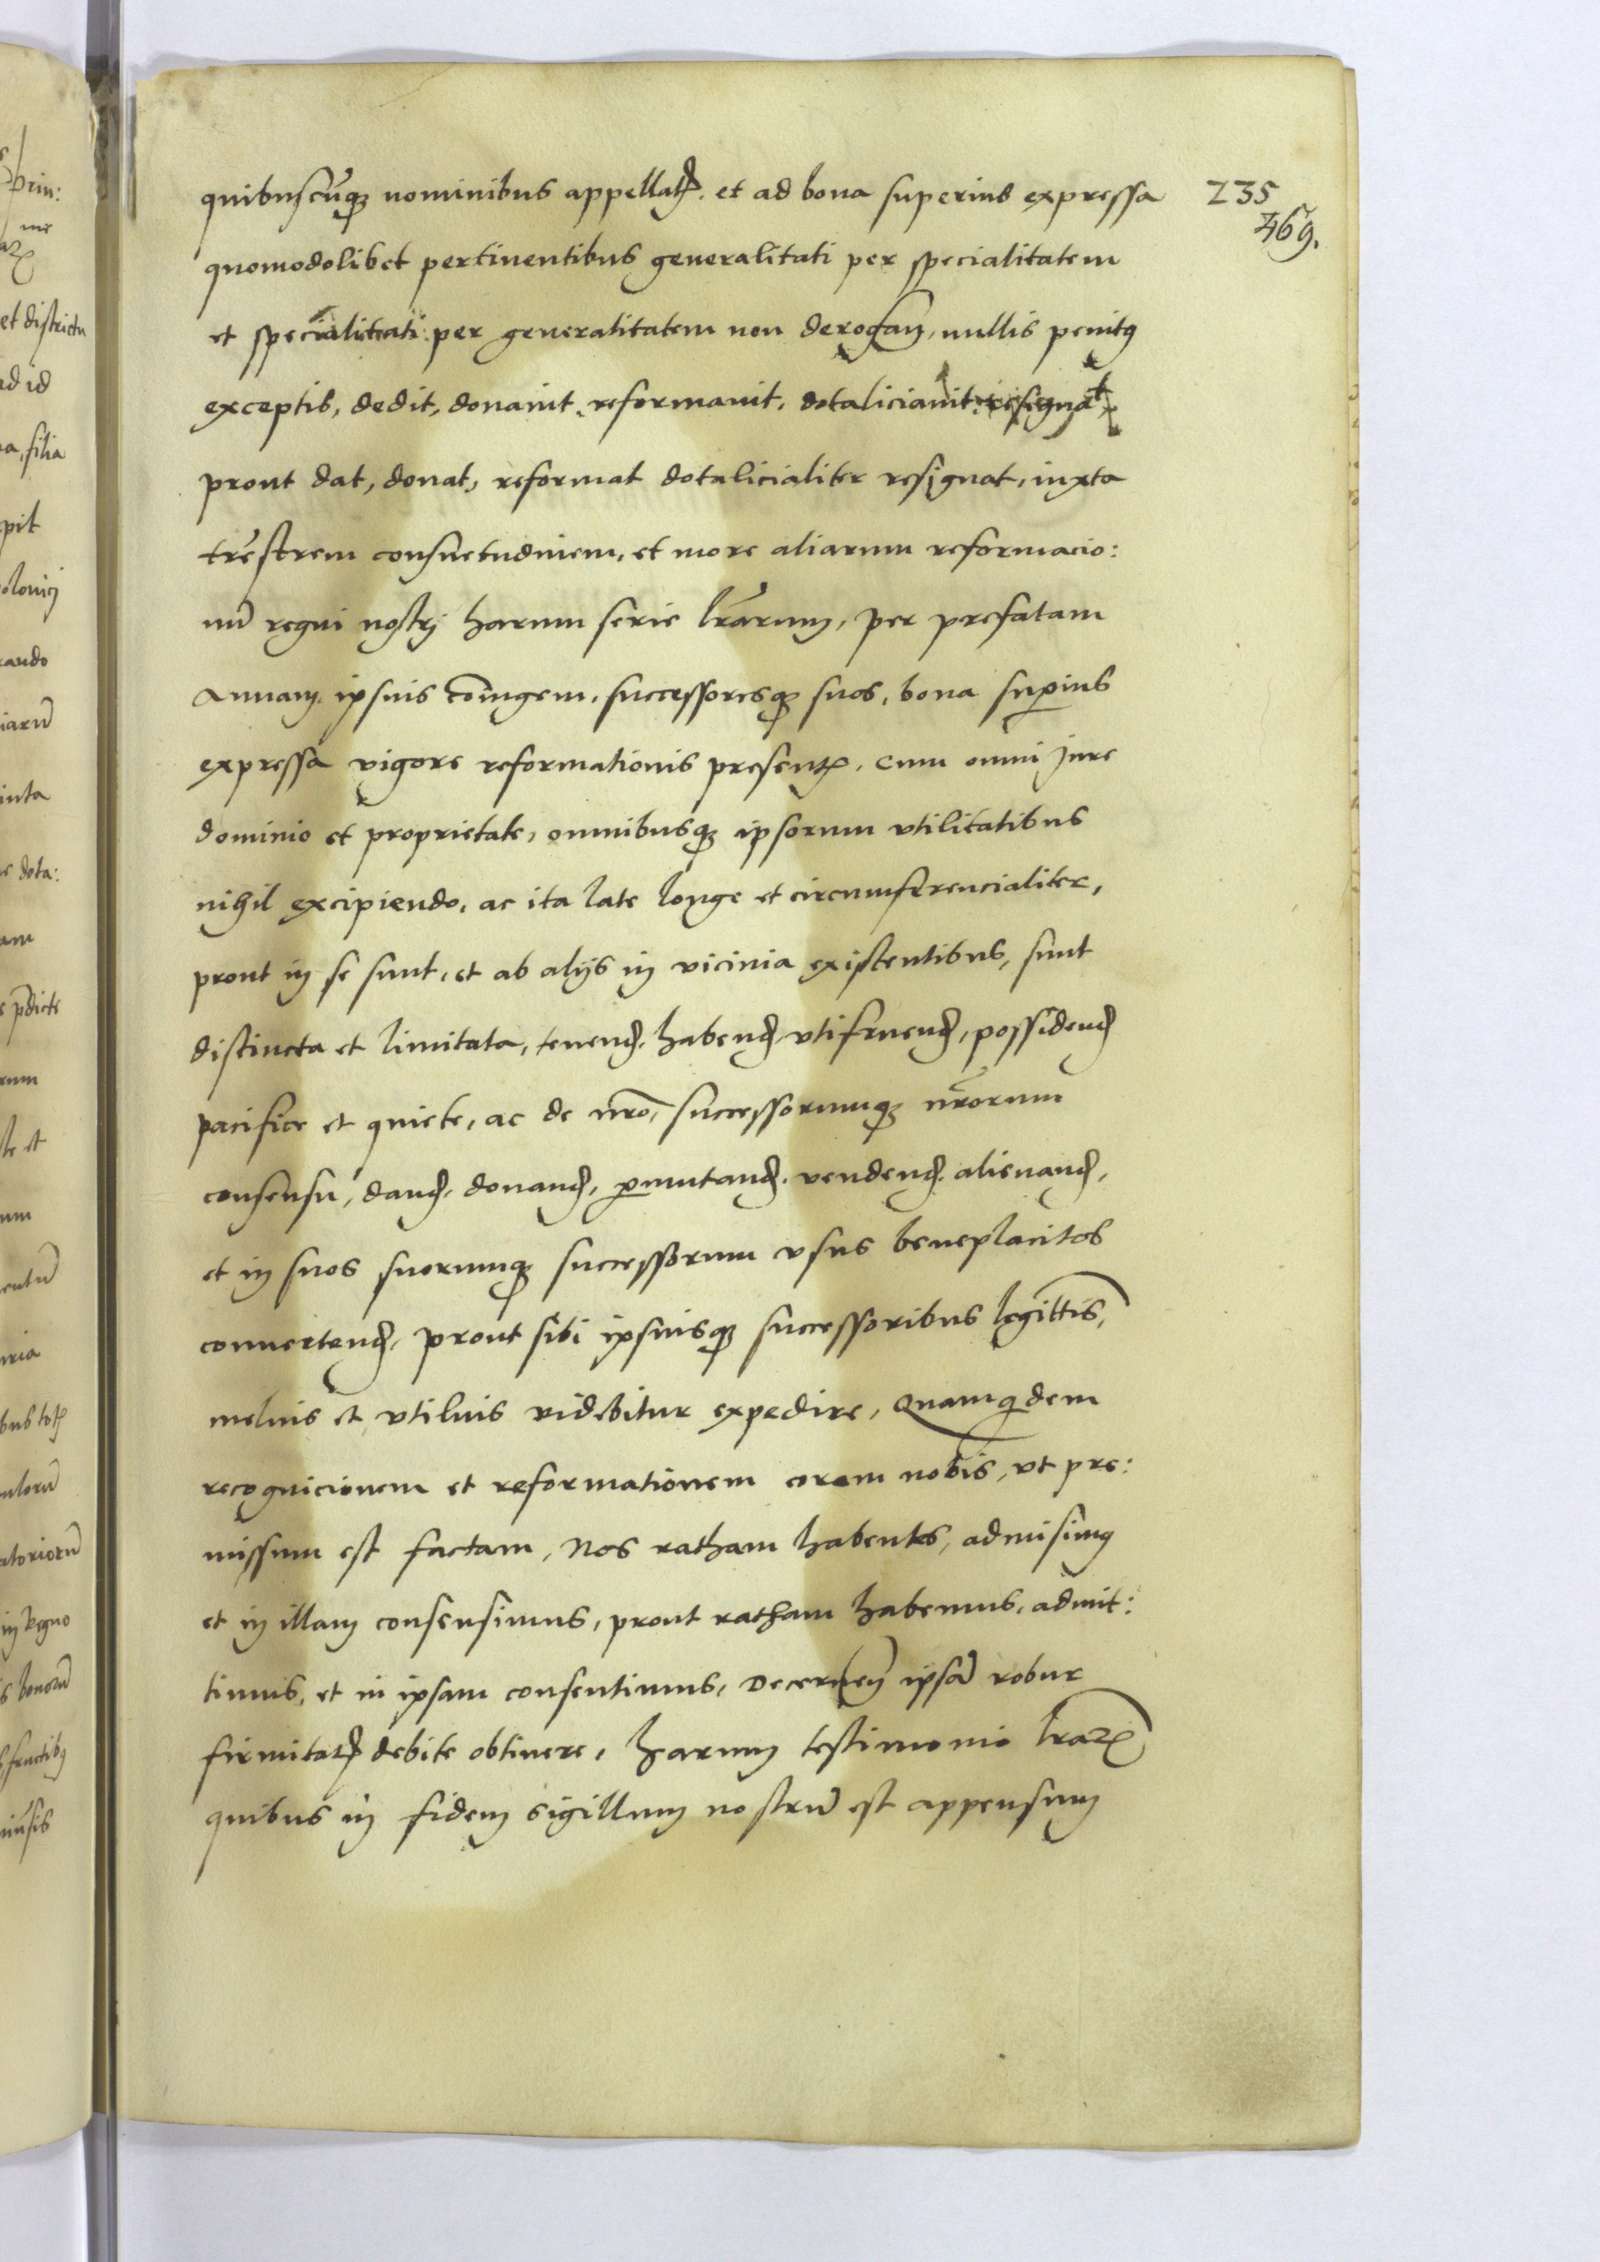 235
469.
quibuscūqȝ nominibus appellatꝭ. et ad bona superius expressa
quomodolibet pertinentibus generalitati per specialitatem
et specialitati per generalitatem non derogañ, nullis penitꝰ
exceptis, dedit, donauit, reformauit, dotaliciauit, resignat,
prout dat, donat, reformat dotalicialiter resignat, iuxta
tre͂strem consuetudinem, et more aliarum reformacio:
nū regni nostrj harum serie lr̃arum, per prefatam
Annam, ipsius coniugem, successoresqȝ suos, bona suꝑius
expressa vigore reformationis presentꝭ, cum omni Jure
dominio et proprietate, omnibusqȝ ipsorum vtilitatibus
nihil excipiendo, ac ita late longe et circumferencialiter,
prout in se sunt, et ab alijs in vicinia existentibus, sunt
distincta et limitata, tenenꝭ, habenꝭ vtifruenꝭ, possidenꝭ
pacifice et quiete, ac de nr̃o, successorumqȝ nr̃orum
consensu, danꝭ, donanꝭ, ꝑmutanꝭ, vendenꝭ, alienanꝭ,
et in suos suorumqȝ successorum vsus beneplacitos
conuertenꝭ, prout sibi ipsiusqȝ successoribus legittis,
melius et vtilius videbitur expedire, Quamqidem
recognicionem et reformationem coram nobis, vt pre:
missum est factam, Nos ratham habentes, admisimꝰ
et in illam consensimus, prout ratham habemus, admit:
timus, et in ipsam consentimus, Decerneñ ipsā robur
firmitatꝭ debite obtinere, harum testimonio lr̃arꝝ
quibus in fidem sigillum nostrū est appensum
et districtu
ad id
filia